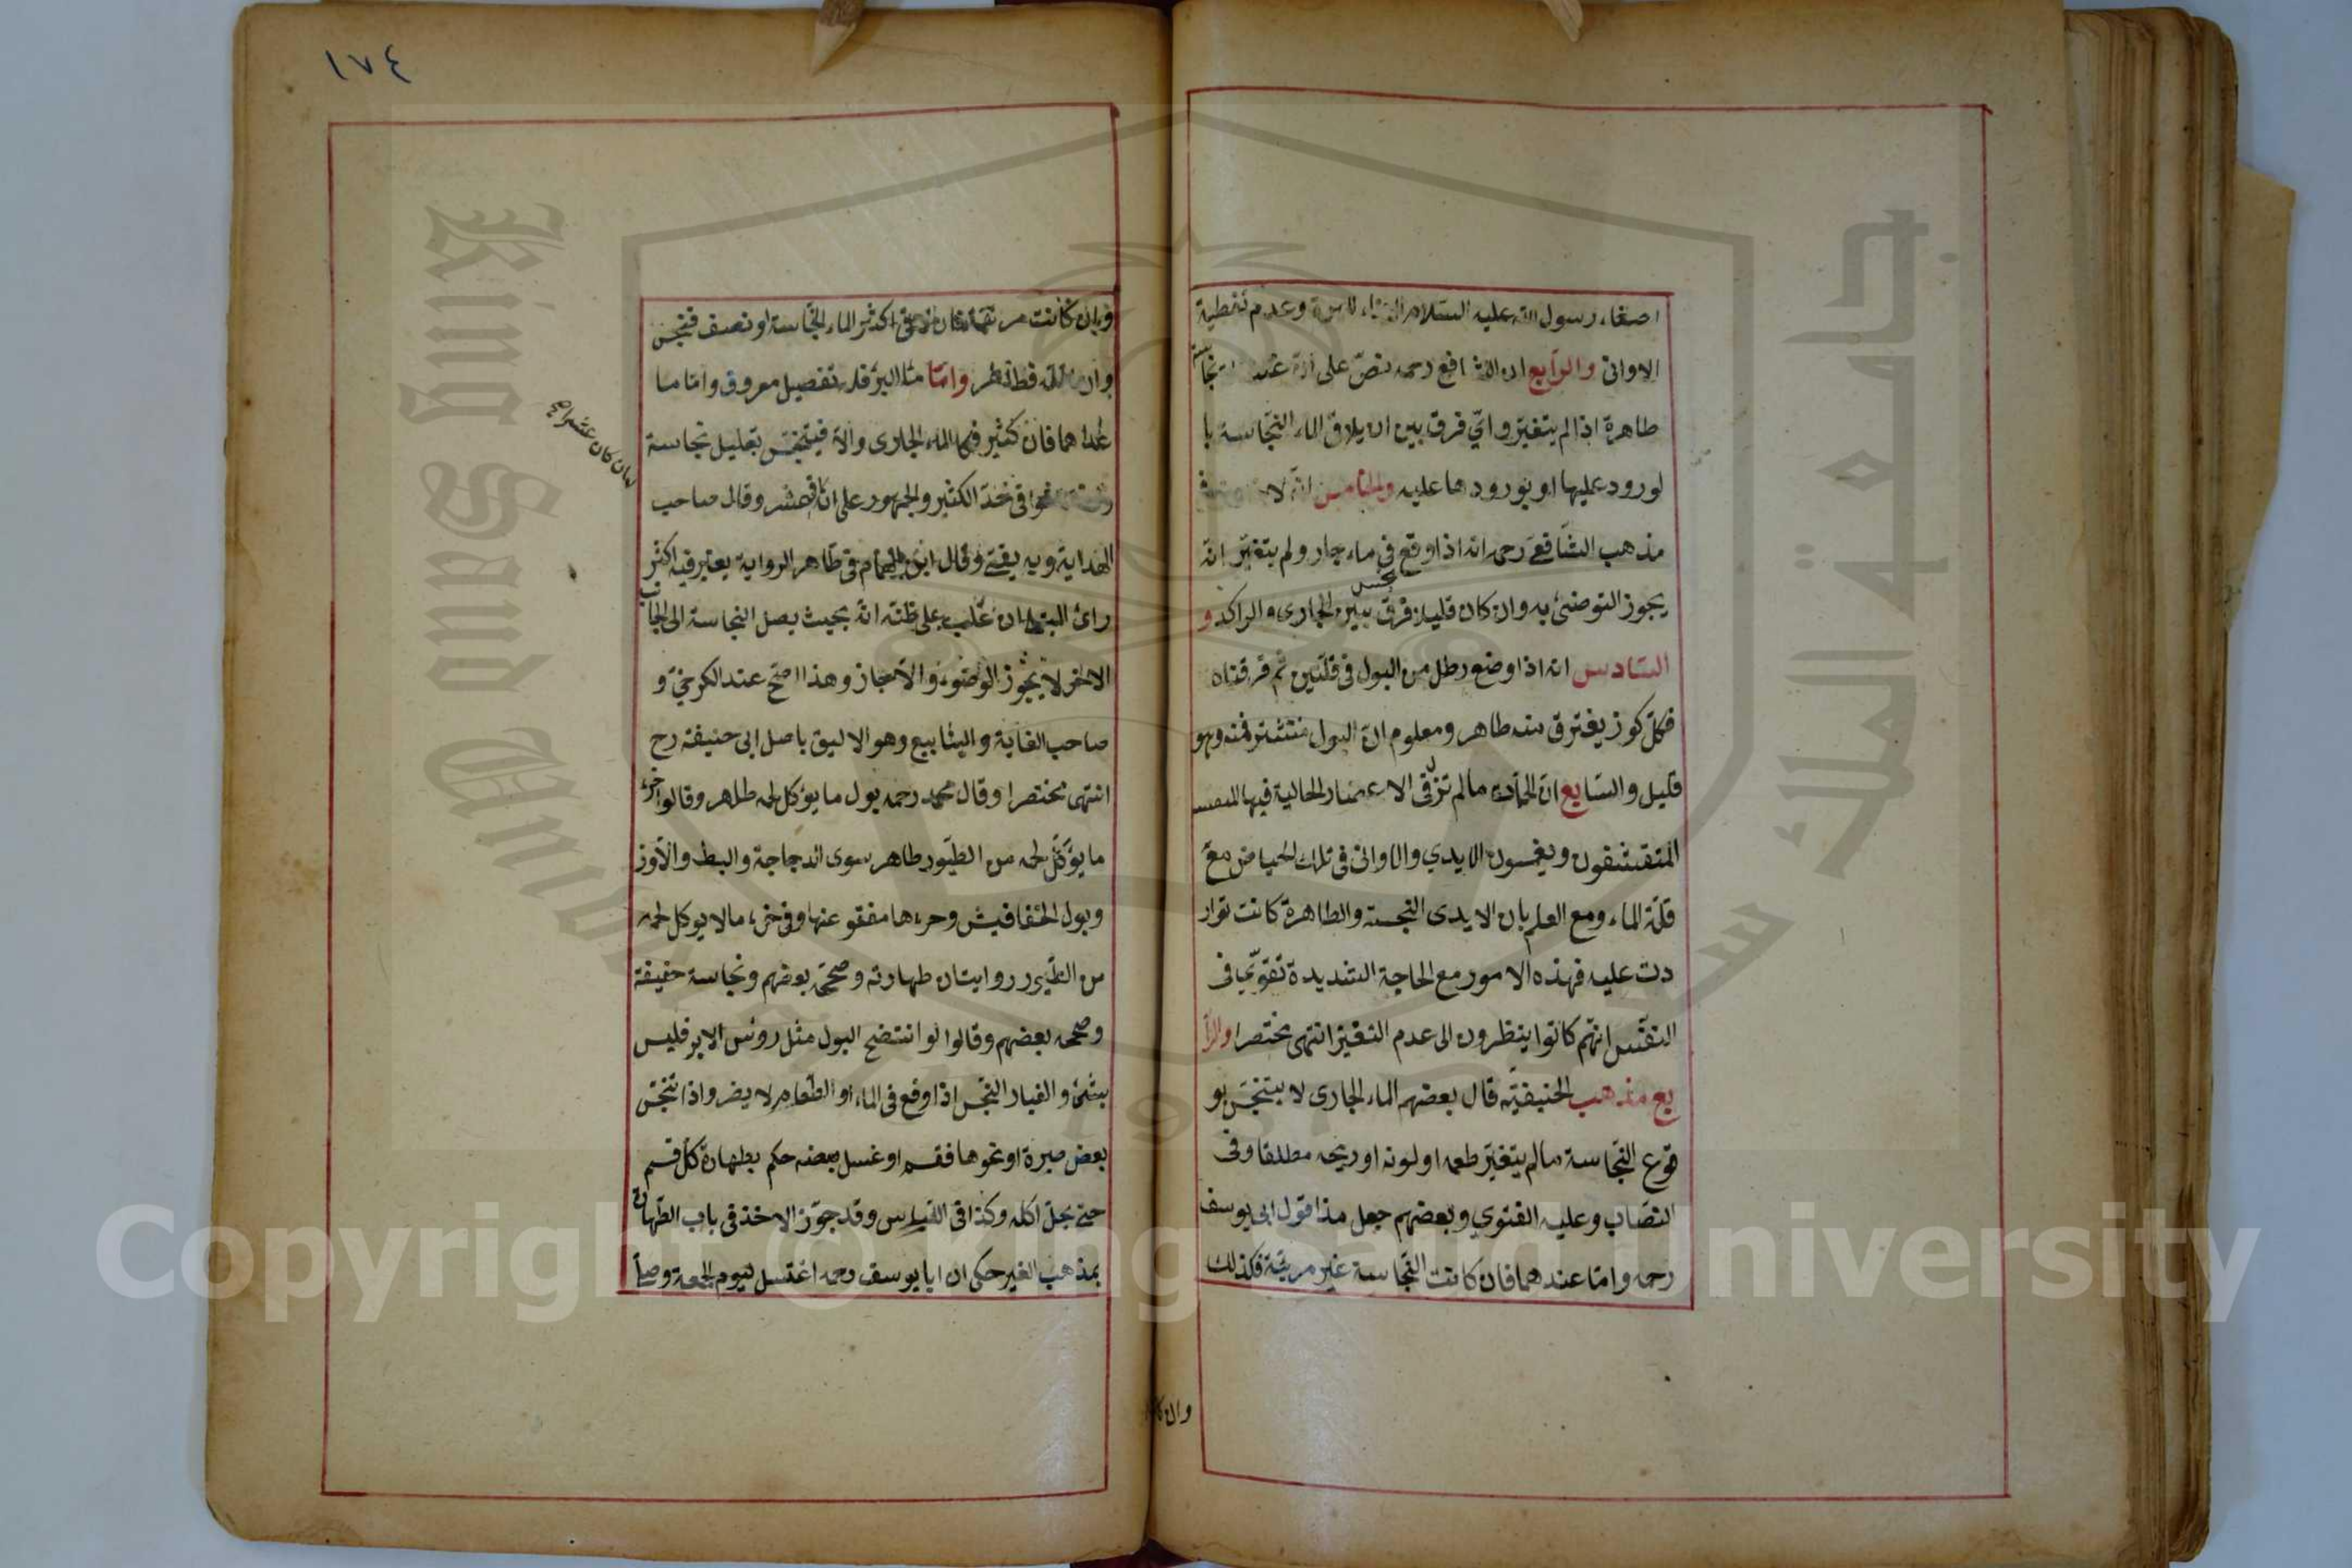 اصغاء رسول الله عليه السلام الاناء للهرة وعدم تغطية
الاوانى والرابع ان الشافعى رحمه نص على ان غسالة النجاسة
طاهرة اذا لم يتغير واى فرق بين ان يلاقى الماء النجاسة با
لورود عليها او بورودها عليه والخامس انه لا خلاف فى
مذهب الشافعى رحمه انه اذا وقع فى ماء جار ولم يتغير انه
يجوز التوضئ به وان كان قليلا فرق بين الجارى والراكد و
السادس انه اذا وضع رطل من البول فى قلتين ثم فرقتاه
فكل كوز يغترف منه طاهر ومعلوم ان البول منتشر فيه وهو
قليل والسابع ان الحمامات ما لم تزل فى الاعصار الخالية فيها
المتقشفون ويغمسون الايدى والاوانى فى تلك الحياض مع
قلة الماء ومع العلم بان الايدى النجسة والطاهرة كانت توار
دت عليه فهذه الامور مع الحاجة الشديدة تقوى فى
النفس انهم كانوا ينظرون الى عدم التغير انتهى مختصرا والرا
بع مذهب الحنيفية قال بعضهم الماء الجارى لا يتنجس بو
قوع النجاسة ما لم يتغير طعمه او لونه او ريحه مطلقا وفى
النصاب وعليه الفتوى وبعضهم جعل هذا قول ابى يوسف
رحمه واما عندهما فان كانت النجاسة غير مرئية فكذلك
وان كا
١٧٤
وان كانت مرئية فان لاقى اكثر الماء النجاسة او نصف فنجس
وان اقله فطاهر واما ماء البئر فله تفصيل معروف واما ما
عداهما فان كثيرا فكالماء الجارى والا فيتنجس بقليل نجاسة
فى حد الكثير والجمهور على انه عشر وقال صاحب
الهداية وبه يفتى وقال ابن الهمام فى ظاهر الرواية يعتبر فيه اكثر
رائ المبتلى ان غلب على ظنه انه بحيث يصل النجاسة الى الجانب
الاخر لا يجوز الوضوء والا جاز وهذا اصح عند الكرخى و
صاحب الغاية والينابيع وهو الاليق باصل ابى حنيفة رح
انتهى مختصرا وقال محمد رحمه بول ما يؤكل لحمه طاهر وقالوا خرء
ما يؤكل لحمه من الطيور طاهر سوى الدجاجة والبط والاوز
وبول الخفافيش وخرءها معفو عنها وفى خرء ما لا يوكل لحمه
من الطيور روايتان طهارته وصححه بعضهم ونجاسة خفيفة
وصححه بعضهم وقالوا لو انتضح البول مثل رؤس الابر فليس
بشئ والغبار النجس اذا وقع فى الماء او الطعام لا يضر واذا تنجس
بعض صبرة او نحوها فقسم او غسل بعضه حكم بطهارة كل قسم
حتى يحل اكله وكذا فى القياس وقد جوز الاخذ فى باب الطهارة
بمذهب الغير حكى ان ابا يوسف رحمه اغتسل ليوم الجمعة وصلى
Copyright © King Saud University
King Saud University
جامعة الملك سعود